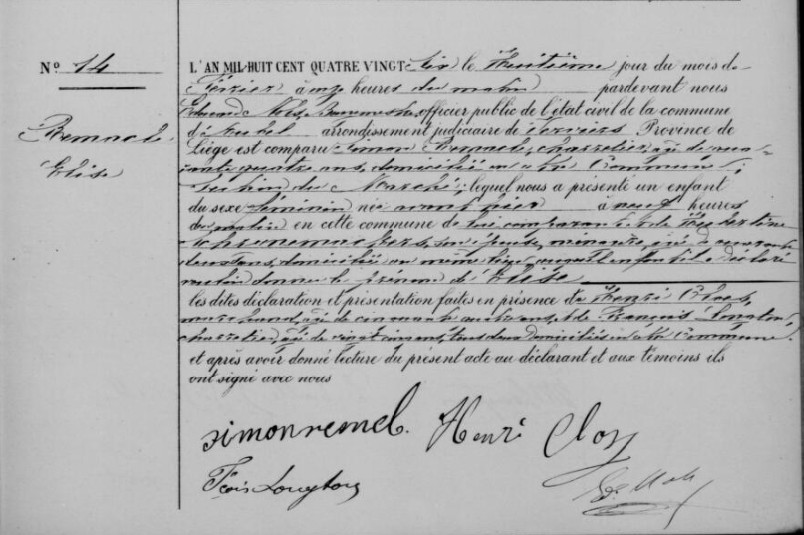 N° 14
Remacle
Elise
L'AN MIL-HUIT CENT QUATRE VINGT six le huitième jour du mois de
Février à onze heures du matin pardevant nous
officier public de l'état civil de la commune
d'Aubel arrondissement judiciaire de Verviers Province de
Liége est comparu Simon Remacle, charretier, âgé de
quatre ans, domicilié en Commune,
Section du Marché; lequel nous a présenté un enfant
du sexe féminin née avant hier à neuf heures
du matin en cette commune de lui comparant et de
son épouse, ménagère, âgée de quarante
deux ans, domiciliée au même lieu, auquel enfant il a déclaré
vouloir donner le prénom de Elise
les dites déclaration et présentation faites en présence de Henri Cloes,
marchand, âgé de cinquante ans, et de François Longton,
charretier, âgé de vingt cinq ans, tous deux domiciliés en Commune.
et après avoir donné lecture du présent acte au déclarant et aux témoins ils
ont signé avec nous
simon remcl. Henri Cloes
Fçois Longton